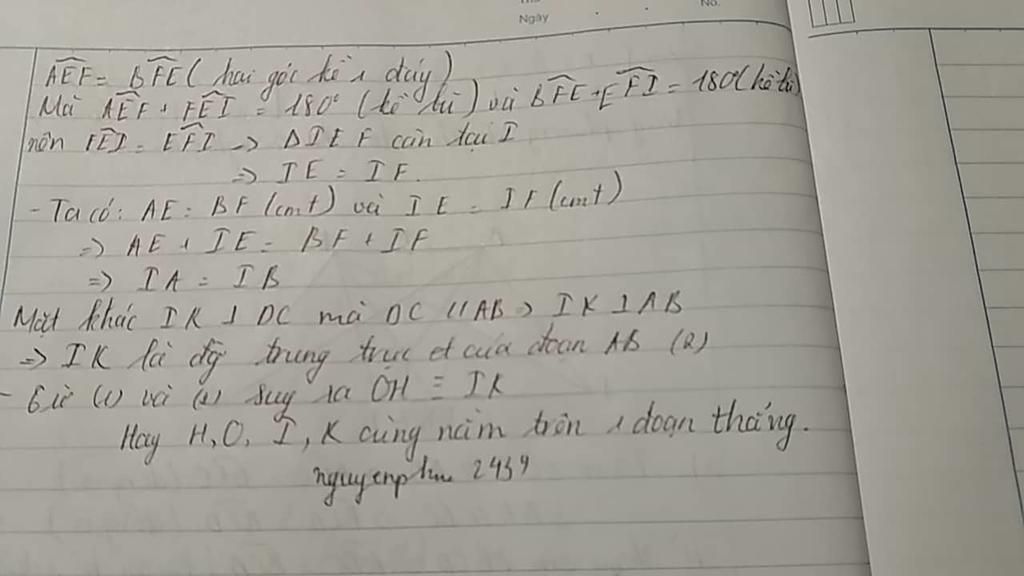 Ngày
No.
AÊF = BF̂E ( hai góc kề 1 đáy)
Mà AÊF + FÊI = 180° (kề bù) và BF̂E + EF̂I = 180° (kề bù)
nên FÊI = EF̂I -> ΔIEF cân tại I
=> IE = IF.
- Ta có: AE = BF (cmt) và IE = IF (cmt)
=> AE + IE = BF + IF
=> IA = IB
Mặt khác IK ⊥ DC mà DC // AB > IK ⊥ AB
=> IK là đg̀ trung trực của đoạn AB (2)
- Từ (1) và (2) suy ra OH ≡ IK
Hay H, O, I, K cùng nằm trên 1 đoạn thẳng.
nguyenphu 2459